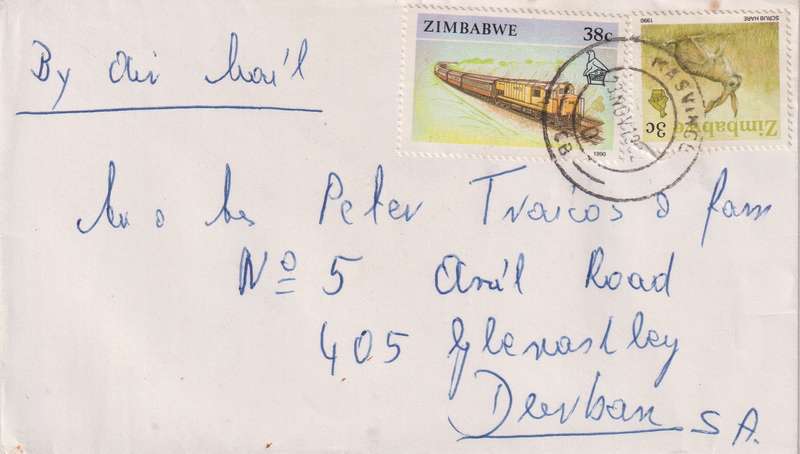 ZIMBABWE 38c
1990
SCRUB HARE
1990
Zimbabwe 3c
MASVINGO
NOV 19
By Air Mail
Mr & Mrs Peter Traicos & fam
No 5 Avril Road
405 Glenashley
Durban S A.